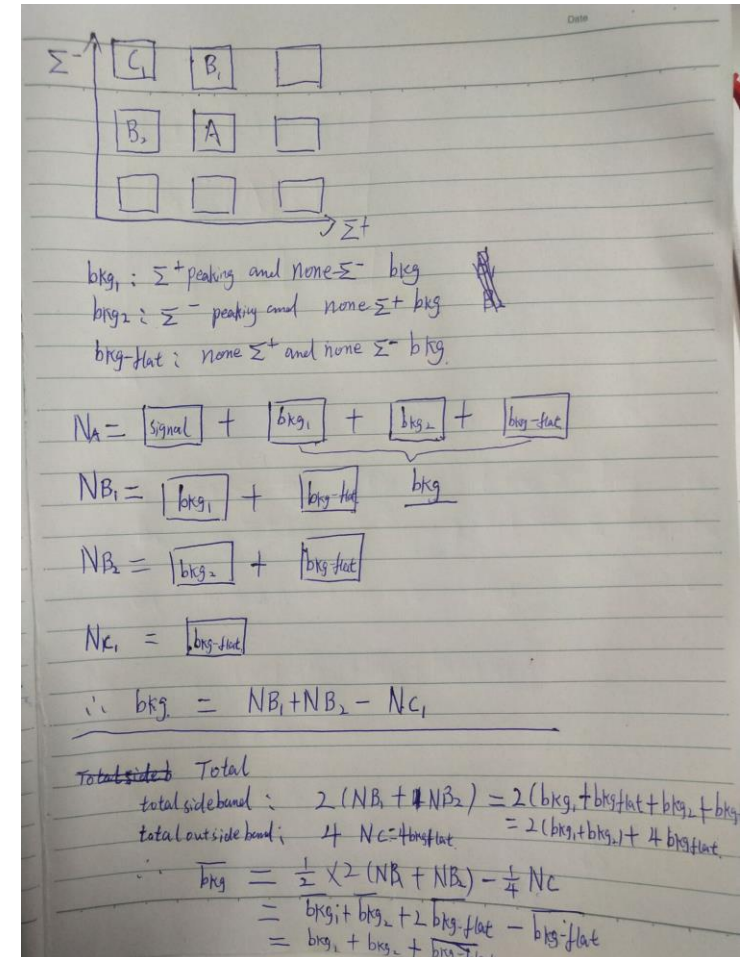 Date
Σ⁻
C₁ B₁
B₂ A
Σ+
bkg₁ : Σ⁺ peaking and none Σ⁻ bkg
bkg₂ : Σ⁻ peaking and none Σ+ bkg
bkg-flat : none Σ⁺ and none Σ⁻ bkg.
N_A = signal + bkg₁ + bkg₂ + bkg-flat
NB₁ = bkg₁ + bkg-flat bkg
NB₂ = bkg₂ + bkg-flat
Nc₁ = bkg-flat
∴ bkg. = NB₁ + NB₂ - Nc₁
Total
total sideband : 2 (NB₁ + NB₂) = 2(bkg₁ + bkgflat + bkg₂ + bkg
= 2(bkg₁ + bkg₂) + 4 bkgflat
total outsideband ; 4 Nc = 4bkgflat
∴ bkg = ½ × 2 (NB₁ + NB₂) - ¼ NC
= bkg₁ + bkg₂ + 2 bkg-flat - bkg-flat
= bkg₁ + bkg₂ + bkg-